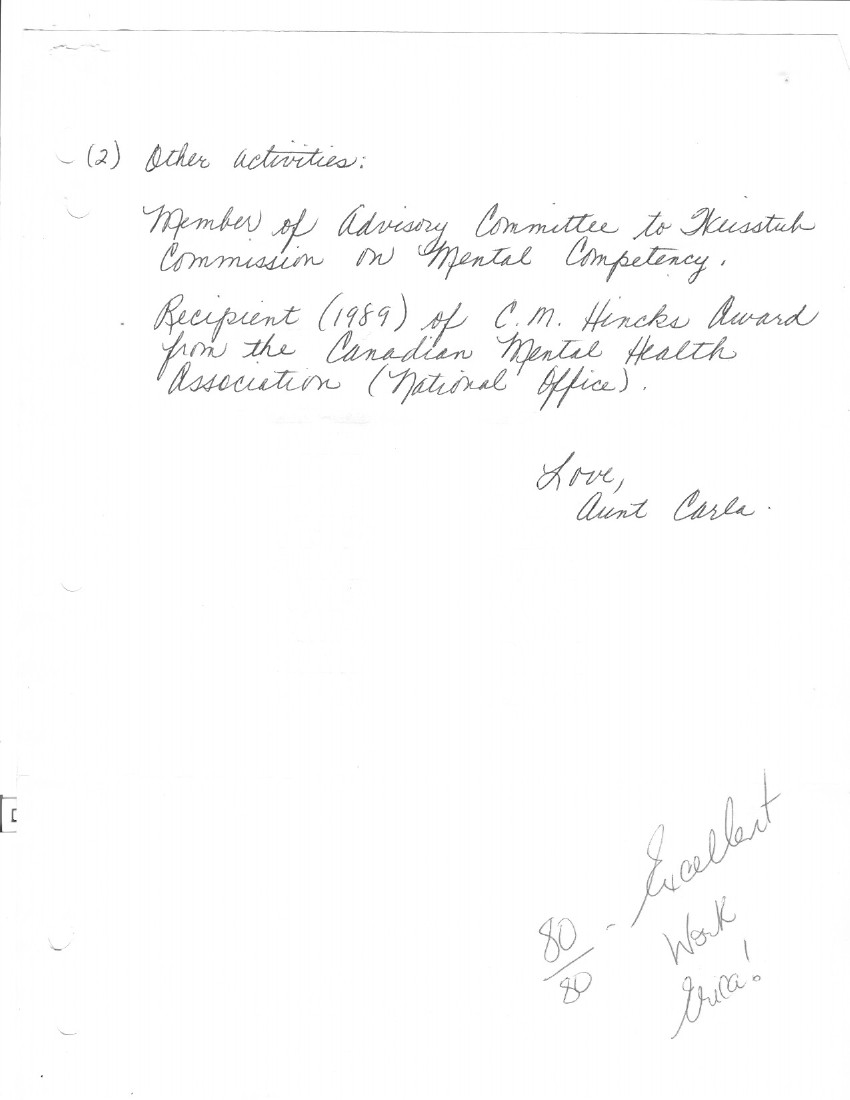 (2) Other activities:
Member of Advisory Committee to Weisstub
Commission on Mental Competency.
Recipient (1989) of C.M. Hincks Award
from the Canadian Mental Health
Association (National Office).
Love,
Aunt Carla.
80/80 - Excellent
Work
Erica!